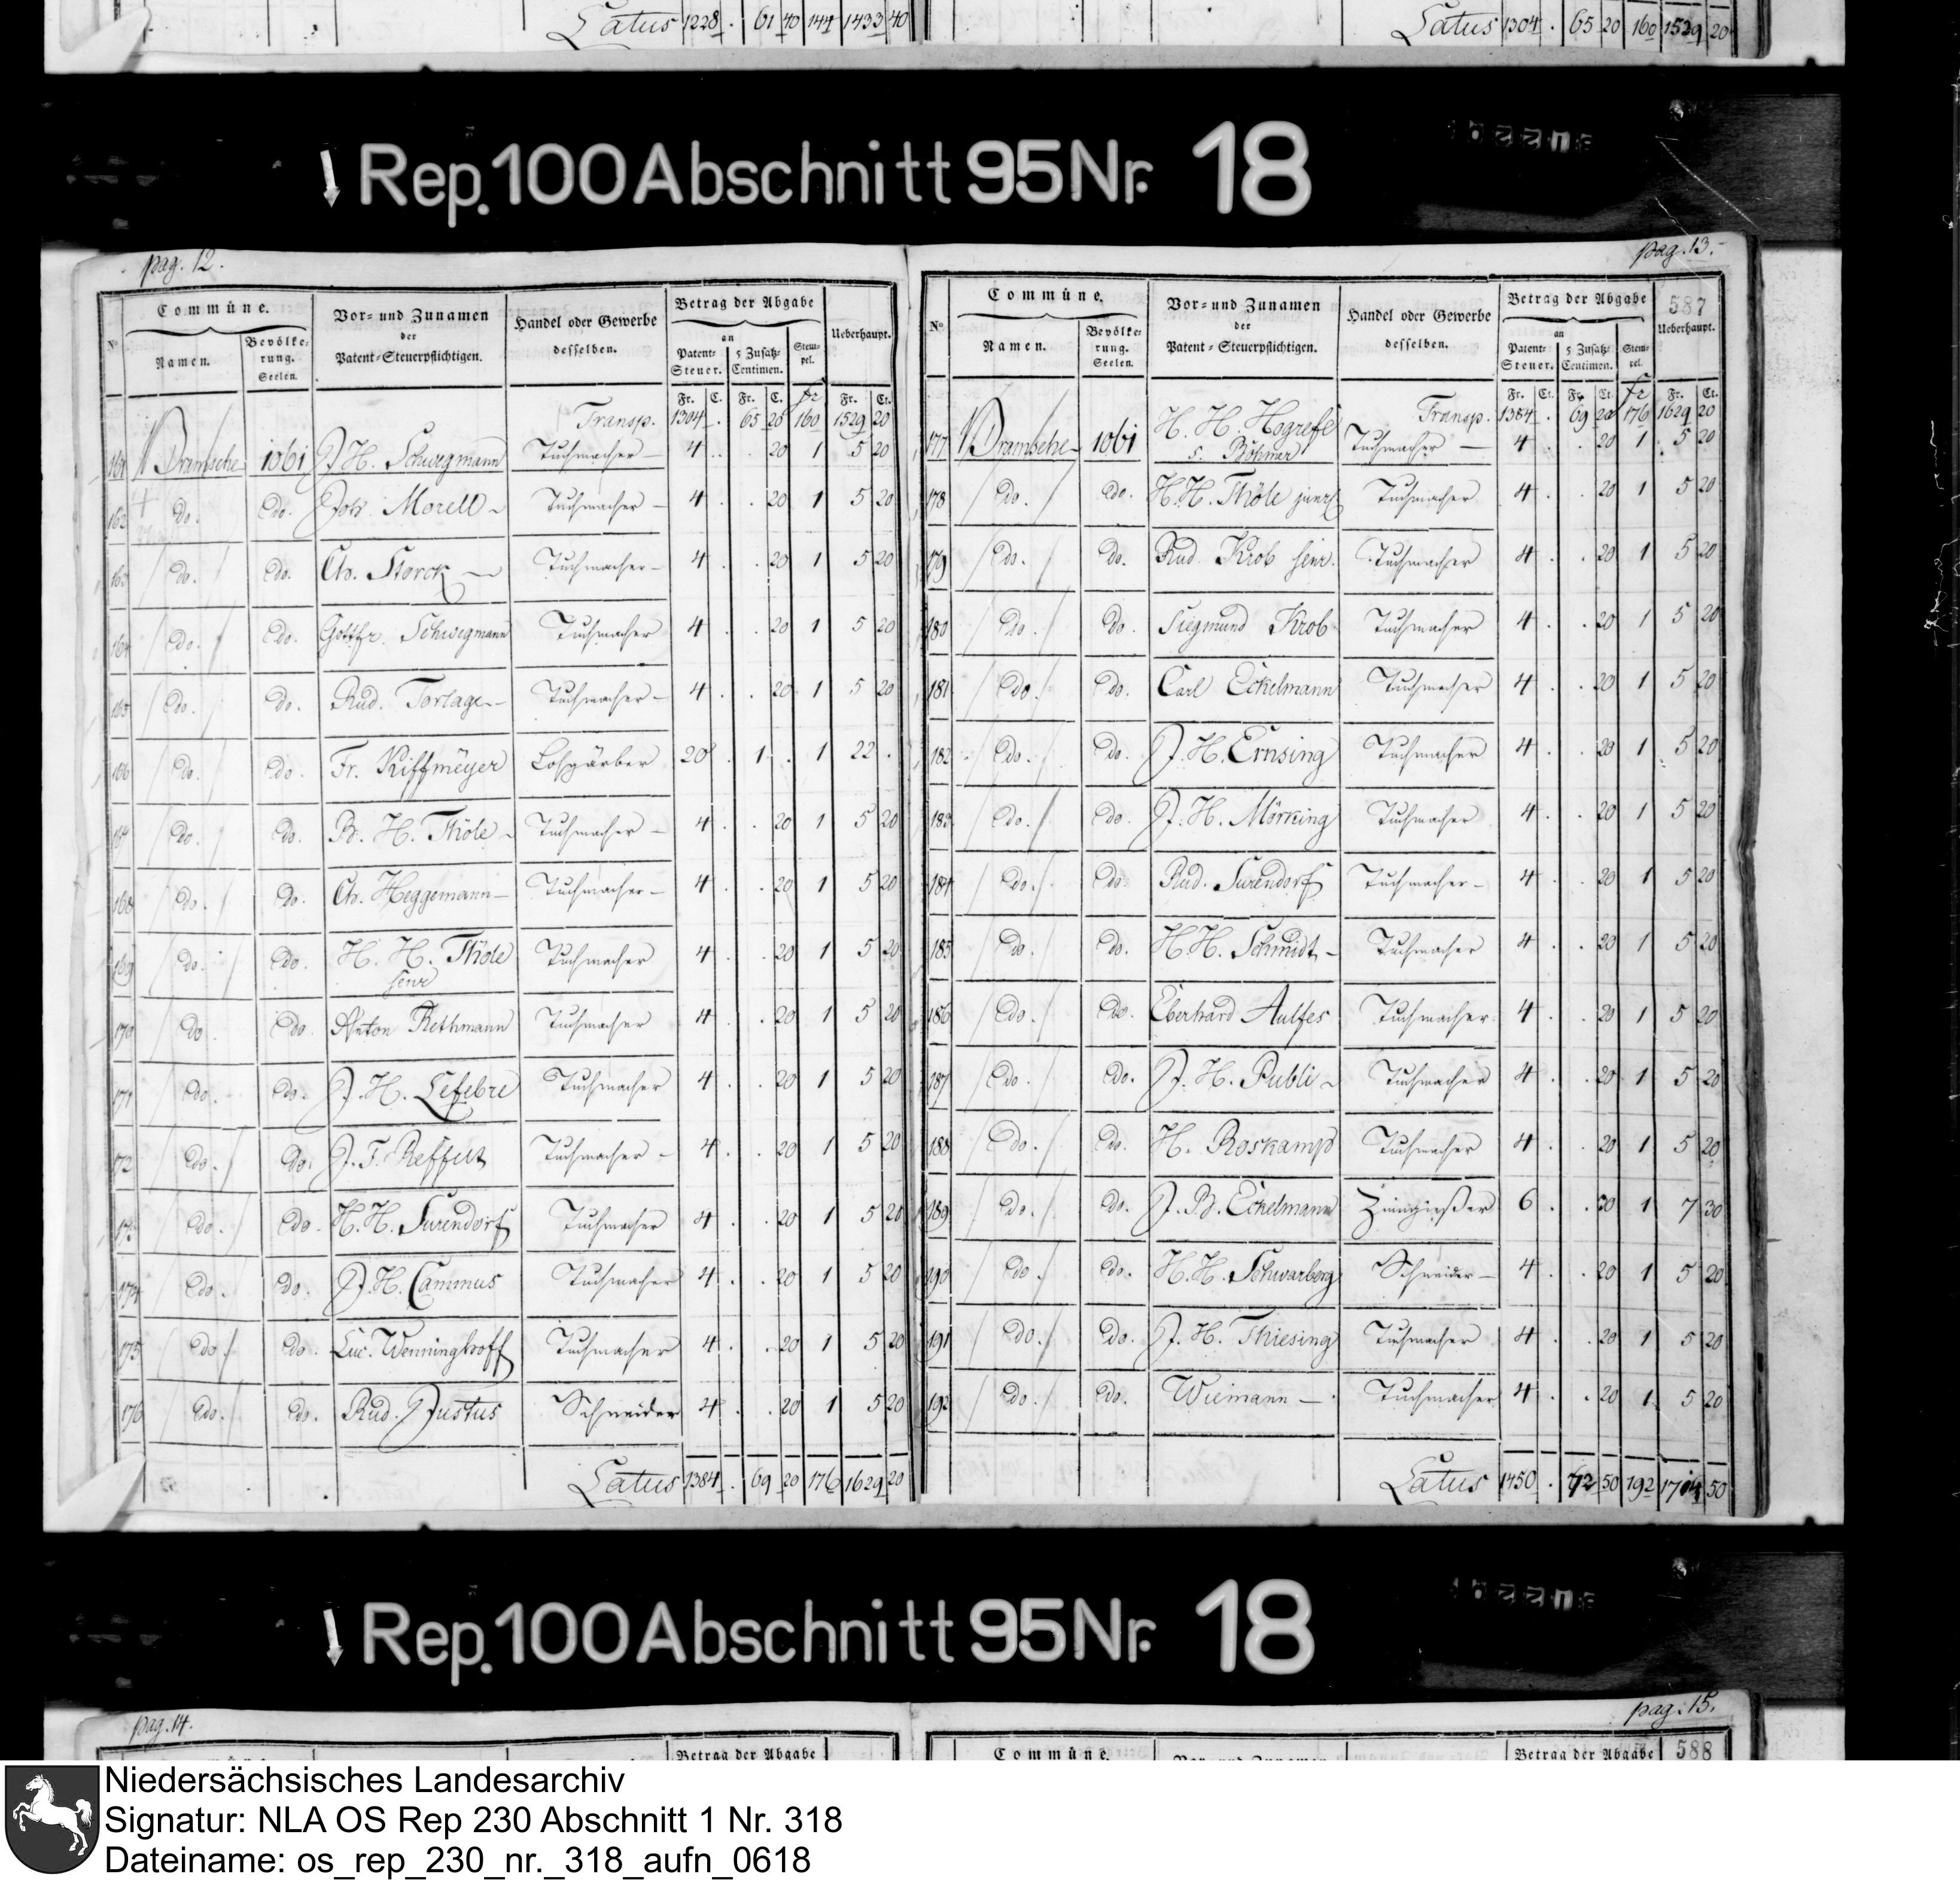 Latus 1228 . 61 40 144 1433 40
Latus 1304 . 65 20 160 1529 20
Rep. 100 Abschnitt 95 Nr. 18
pag. 12.
Commüne. Vor- und Zunamen der Patent-Steuerpflichtigen. Handel oder Gewerbe desselben. Betrag der Abgabe Ueberhaupt.
N° Namen. Bevölkerung. Seelen. an Patent-Steuer. 5 Zusatz-Centimen. Stempel.
Fr. C. Fr. C. fr Fr. Ct.
Transp. 1304 . 65 20 160 1529 20
161 Bramsche 1061 J. H. Schwegmann Tuchmacher 4 . . 20 1 5 20
162 do. do. Joh. Morell Tuchmacher 4 . . 20 1 5 20
163 do. do. Ch. Storck Tuchmacher 4 . . 20 1 5 20
164 do. do. Gottfr. Schwegmann Tuchmacher 4 . . 20 1 5 20
165 do. do. Rud. Torlage Tuchmacher 4 . . 20 1 5 20
166 do. do. Fr. Kiffmeyer Lohgärber 20 . 1 . 1 22 .
167 do. do. B. H. Thöle Tuchmacher 4 . . 20 1 5 20
168 do. do. Ch. Heggemann Tuchmacher 4 . . 20 1 5 20
169 do. do. H. H. Thöle senr Tuchmacher 4 . . 20 1 5 20
170 do. do. Anton Rethmann Tuchmacher 4 . . 20 1 5 20
171 do. do. J. H. Lefebre Tuchmacher 4 . . 20 1 5 20
172 do. do. J. F. Tuchmacher 4 . . 20 1 5 20
173 do. do. H. H. Surendorf Tuchmacher 4 . . 20 1 5 20
174 do. do. J. H. Cammus Tuchmacher 4 . . 20 1 5 20
175 do. do. Luc. Wenninghoff Tuchmacher 4 . . 20 1 5 20
176 do. do. Rud. Justus Schneider 4 . . 20 1 5 20
Latus 1384 . 69 20 176 1629 20
pag. 13.
587
Commüne. Vor- und Zunamen der Patent-Steuerpflichtigen. Handel oder Gewerbe desselben. Betrag der Abgabe Ueberhaupt.
N° Namen. Bevölkerung. Seelen. an Patent-Steuer. 5 Zusatz-Centimen. Stempel.
Fr. Ct. Fr. Ct. fr Fr. Ct.
Transp. 1384 . 69 20 176 1629 20
177 Bramsche 1061 H. H. Hogrefe s. Böhmer Tuchmacher 4 . . 20 1 5 20
178 do. do. H. H. Thöle junr Tuchmacher 4 . . 20 1 5 20
179 do. do. Rud. Krob senr. Tuchmacher 4 . . 20 1 5 20
180 do. do. Siegmund Krob Tuchmacher 4 . . 20 1 5 20
181 do. do. Carl Eckelmann Tuchmacher 4 . . 20 1 5 20
182 do. do. J. H. Ernsing Tuchmacher 4 . . 20 1 5 20
183 do. do. J. H. Mörking Tuchmacher 4 . . 20 1 5 20
184 do. do. Rud. Surendorf Tuchmacher 4 . . 20 1 5 20
185 do. do. H. H. Schmidt Tuchmacher 4 . . 20 1 5 20
186 do. do. Eberhard Aulfes Tuchmacher 4 . . 20 1 5 20
187 do. do. J. H. Publi Tuchmacher 4 . . 20 1 5 20
188 do. do. H. Roskamp Tuchmacher 4 . . 20 1 5 20
189 do. do. J. B. Eckelmann Zinngießer 6 . . 30 1 7 30
190 do. do. H. H. Schwarberg Schneider 4 . . 20 1 5 20
191 do. do. J. H. Thiesing Tuchmacher 4 . . 20 1 5 20
192 do. do. Wiemann Tuchmacher 4 . . 20 1 5 20
Latus 1450 . 72 50 192 1714 50
Rep. 100 Abschnitt 95 Nr. 18
pag. 14.
Betrag der Abgabe
pag. 15.
Commüne. Betrag der Abgabe 588
Niedersächsisches Landesarchiv
Signatur: NLA OS Rep 230 Abschnitt 1 Nr. 318
Dateiname: os_rep_230_nr._318_aufn_0618